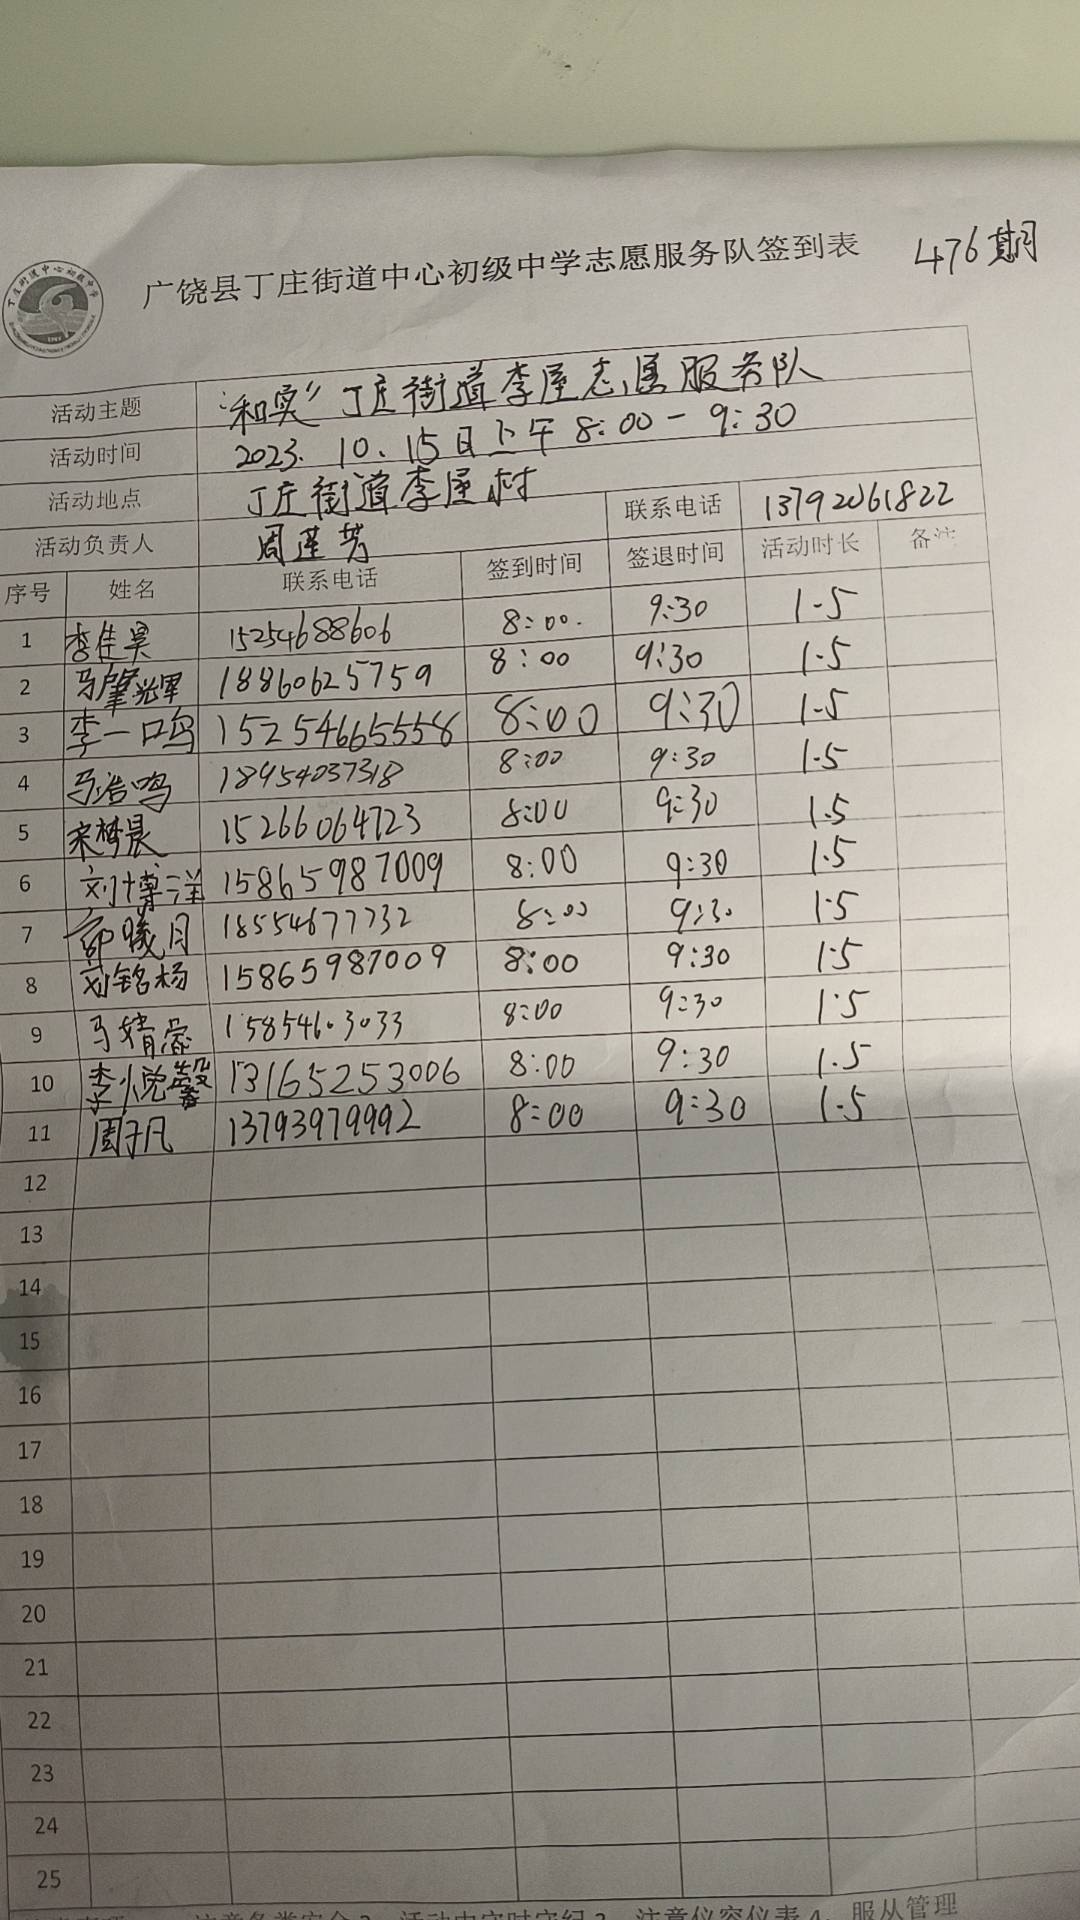 广饶县丁庄街道中心初级中学志愿服务队签到表 476期
活动主题 “和奕”丁庄街道李屋志愿服务队
活动时间 2023.10.15日上午8:00-9:30
活动地点 丁庄街道李屋村
活动负责人 周莲芳 联系电话 13792061822
序号 姓名 联系电话 签到时间 签退时间 活动时长 备注
1 李佳昊 15254688606 8:00. 9:30 1.5
2 马肇 18860625759 8:00 9:30 1.5
3 李一鸣 15254665558 8:00 9:30 1.5
4 马浩鸣 18954037318 8:00 9:30 1.5
5 宋梦晨 15266064723 8:00 9:30 1.5
6 刘博洋 15865987009 8:00 9:30 1.5
7 曦月 18554677732 8:00 9:30 1.5
8 刘铭杨 15865987009 8:00 9:30 1.5
9 马婧 15854603033 8:00 9:30 1.5
10 李悦馨 13165253006 8:00 9:30 1.5
11 周子凡 13793979992 8:00 9:30 1.5
12
13
14
15
16
17
18
19
20
21
22
23
24
25
注意各类安全2、活动中守时守纪3、注意仪容仪表4、服从管理